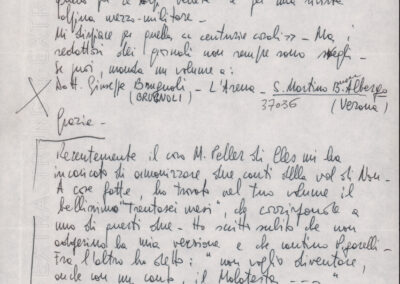 per la venete e per una rivista
alpina mezzo-militare. -
Mi dispiace per quella « centuria corali» - Ma i
redattori dei giornali non sempre sono svegli. -
Se puoi, manda un volume a:
Dott. Giuseppe Brugnoli - L'Arena - S. Martino B. Albergo
(BRUGNOLI) 37036 (Verona)
Grazie -
Recentemente il coro M. Peller di Cles mi ha
incaricato di armonizzare due canti della val di Non.
A cose fatte, ho trovato nel tuo volume il
bellissimo "Trentasei mesi", che corrisponde a
uno di questi due - Ho scritto subito che non
adoperino la mia versione e che cantino Pigarelli -
Fra l'altro ho detto: " non voglio diventare,
anche con un canto, il Malatesta